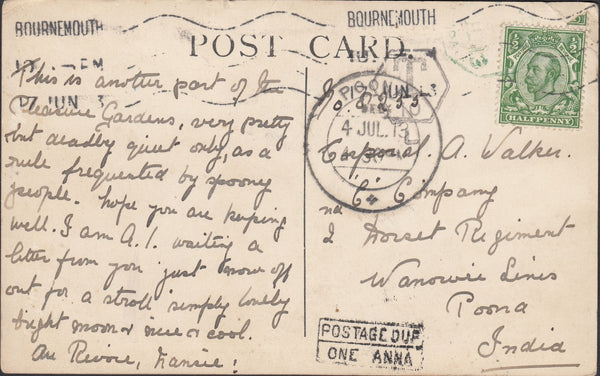 BOURNEMOUTH
BOURNEMOUTH
POST CARD.
½ ½
HALFPENNY
17 JUN 13
JUN 13
T
4 JUL. 13
This is another part of the
Pleasure Gardens, very pretty
but deadly quiet only, as a
rule frequented by spoony
people. hope you are keeping
well. I am A.1. waiting a
letter from you just now off
out for a stroll simply lovely
bright moon & nice & cool.
Au Revoir,
8233
Corporal. A. Walker.
"G" Company
2nd Dorset Regiment
Wanowrie Lines
Poona
India
POSTAGE DUE
ONE ANNA